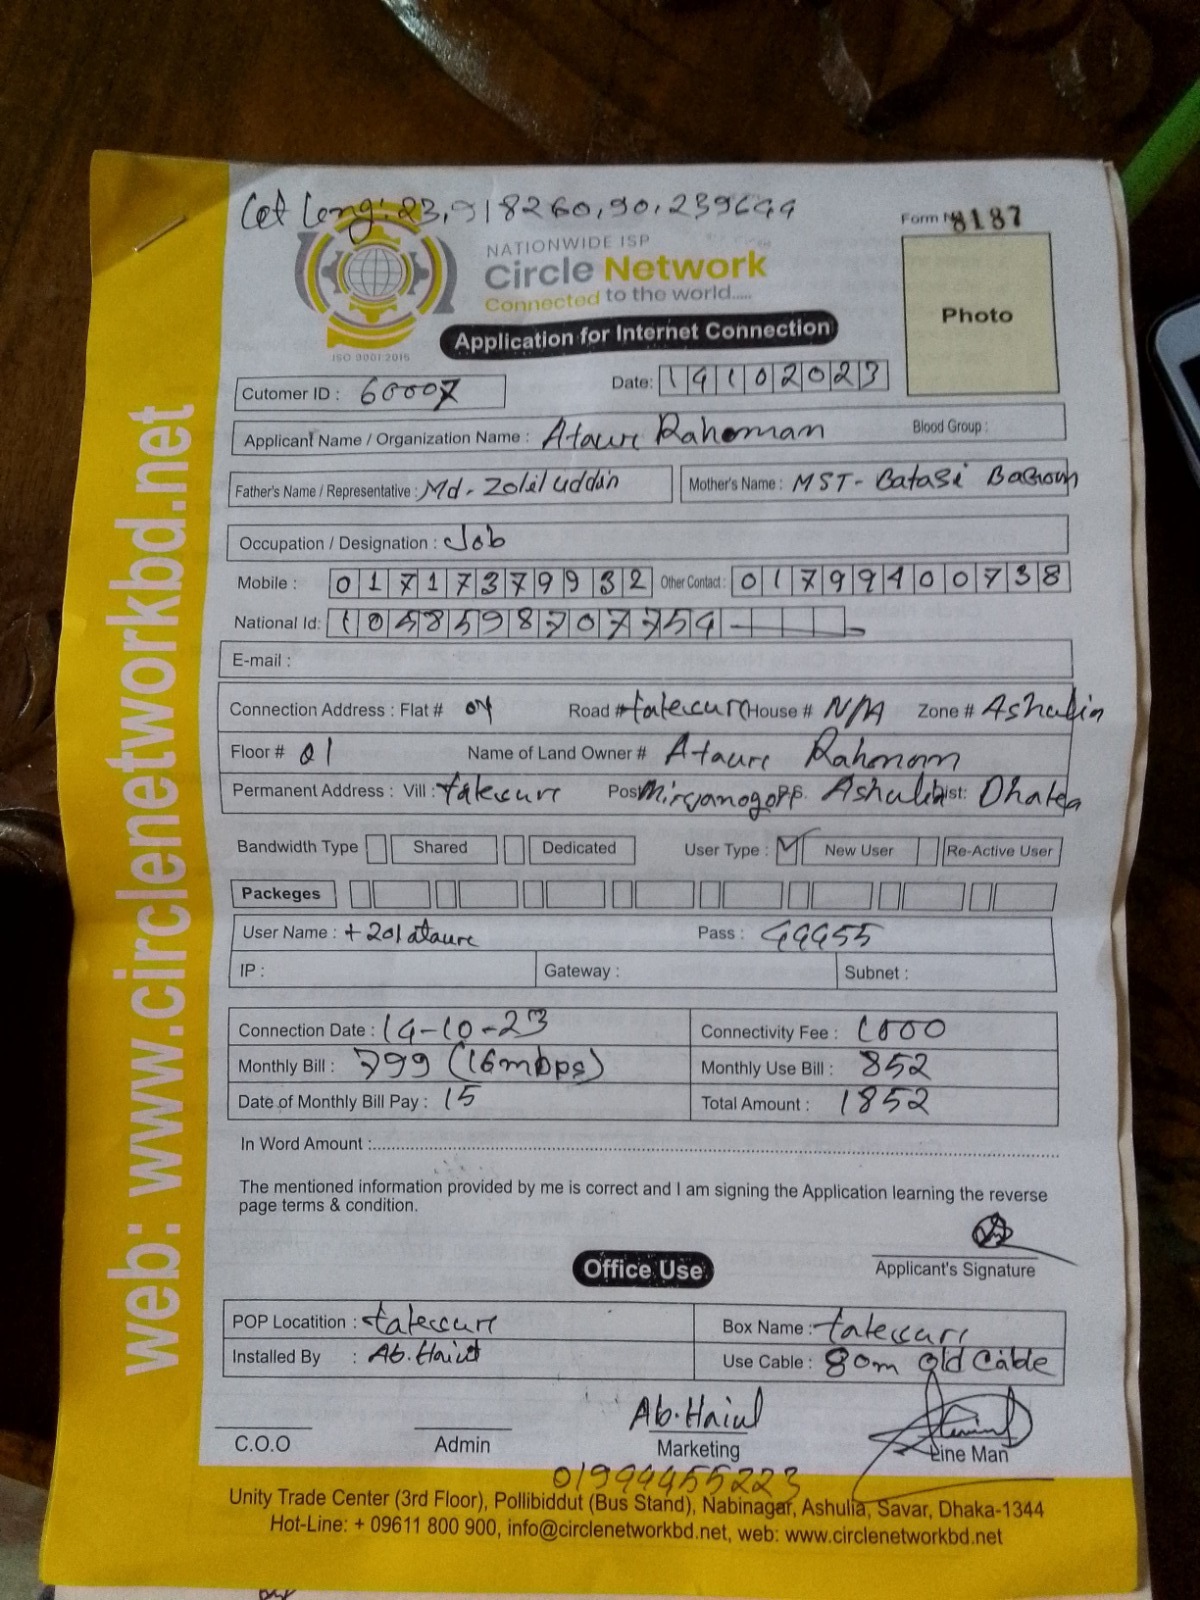 Lat Long: 23,918260,90,239644
Form № 8187
NATIONWIDE ISP
Circle Network
Connected to the world.....
ISO 9001:2015
Application for Internet Connection
Photo
Cutomer ID : 60007
Date: 14102023
Applicant Name / Organization Name : Ataur Rahoman Blood Group :
Father's Name / Representative : Md. Zolil uddin Mother's Name : MST- Batasi
Occupation / Designation : Job
Mobile : 01717379932 Other Contact : 01799400738
National Id: 1
E-mail :
Connection Address : Flat # Road # House # N/A Zone # Ashulia
Floor # 01 Name of Land Owner # Ataur Rahman
Permanent Address : Vill : Post Ashulia Dist: Dhaka
Bandwidth Type Shared Dedicated User Type : New User Re-Active User
Packeges
User Name : Pass : 44455
IP : Gateway : Subnet :
Connection Date : 14-10-23 Connectivity Fee : 1000
Monthly Bill : 799 (16mbps) Monthly Use Bill : 852
Date of Monthly Bill Pay : 15 Total Amount : 1852
In Word Amount :
The mentioned information provided by me is correct and I am signing the Application learning the reverse
page terms & condition.
Applicant's Signature
Office Use
POP Locatition : Box Name :
Installed By : Ab. Use Cable : 80m old Cable
C.O.O Admin Marketing Line Man
01944455223
Unity Trade Center (3rd Floor), Pollibiddut (Bus Stand), Nabinagar, Ashulia, Savar, Dhaka-1344
Hot-Line: + 09611 800 900, info@circlenetworkbd.net, web: www.circlenetworkbd.net
web: www.circlenetworkbd.net